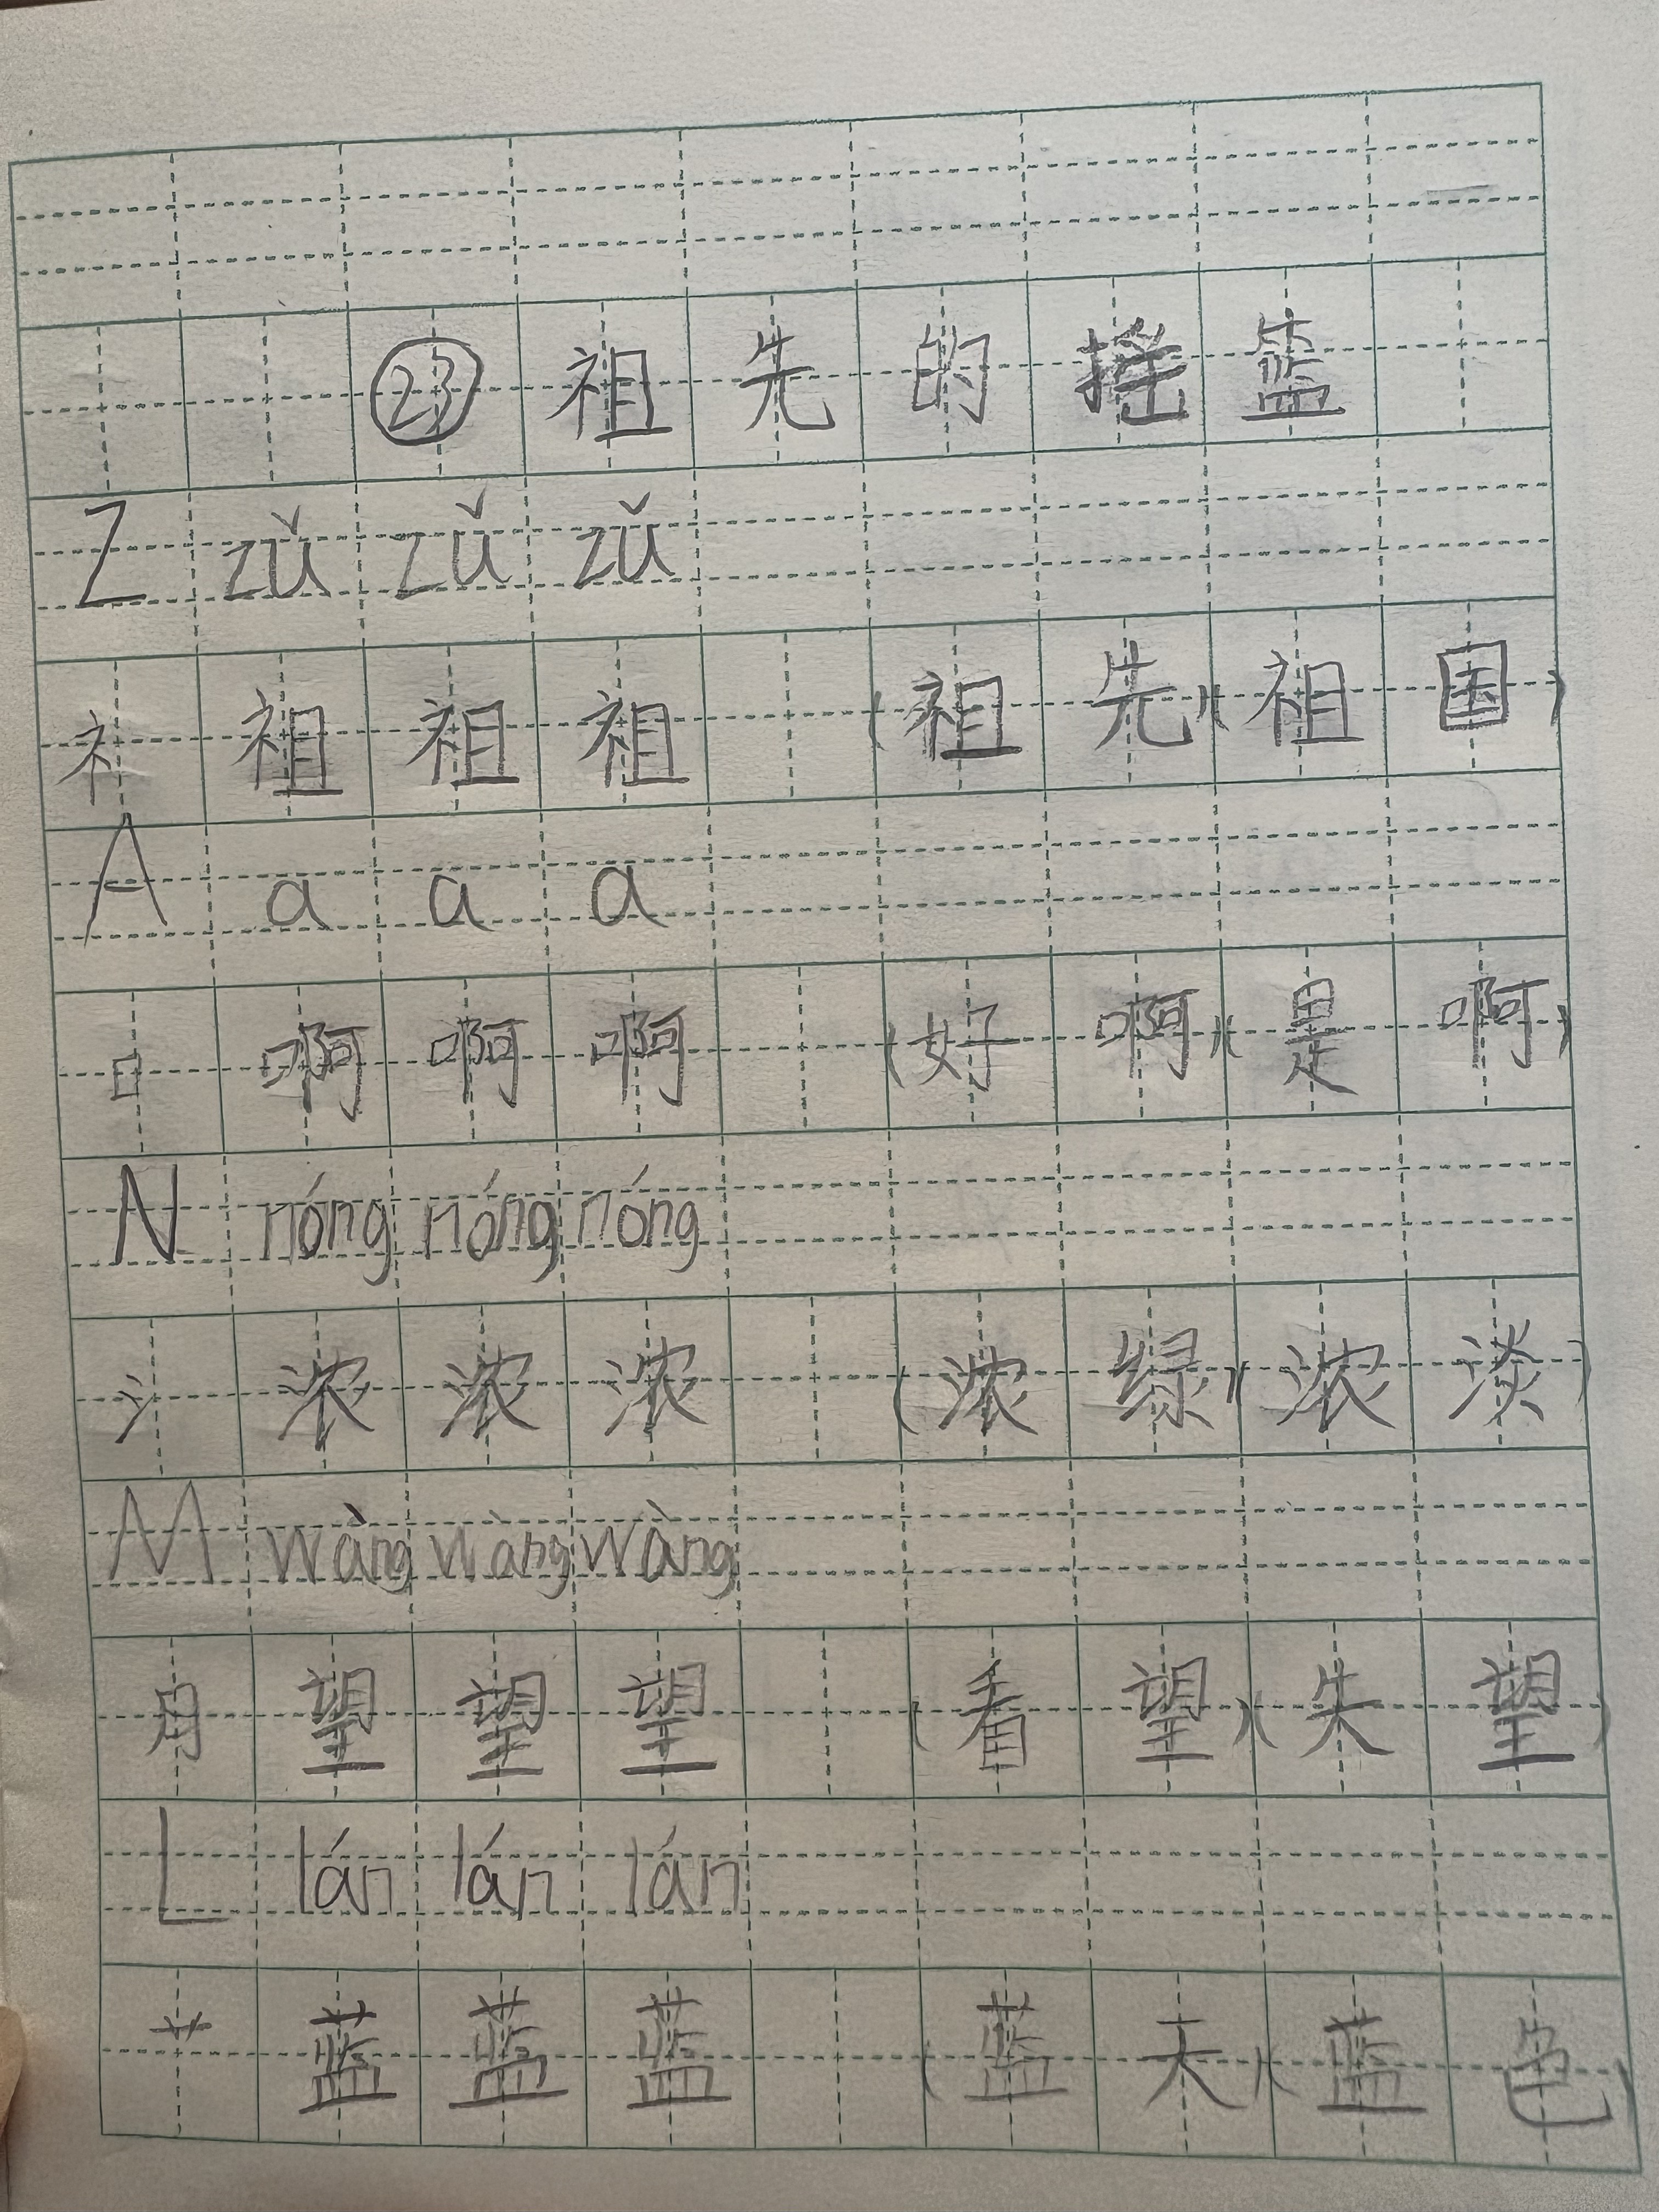 ㉓ 祖先的摇篮
Z zǔ zǔ zǔ
礻 祖 祖 祖 (祖先)(祖国)
A a a a
口 啊 啊 啊 (好啊)(是啊)
N nóng nóng nóng
氵 浓 浓 浓 (浓绿)(浓淡)
M wàng wàng wàng
月 望 望 望 (看望)(失望)
L lán lán lán
艹 蓝 蓝 蓝 (蓝天)(蓝色)